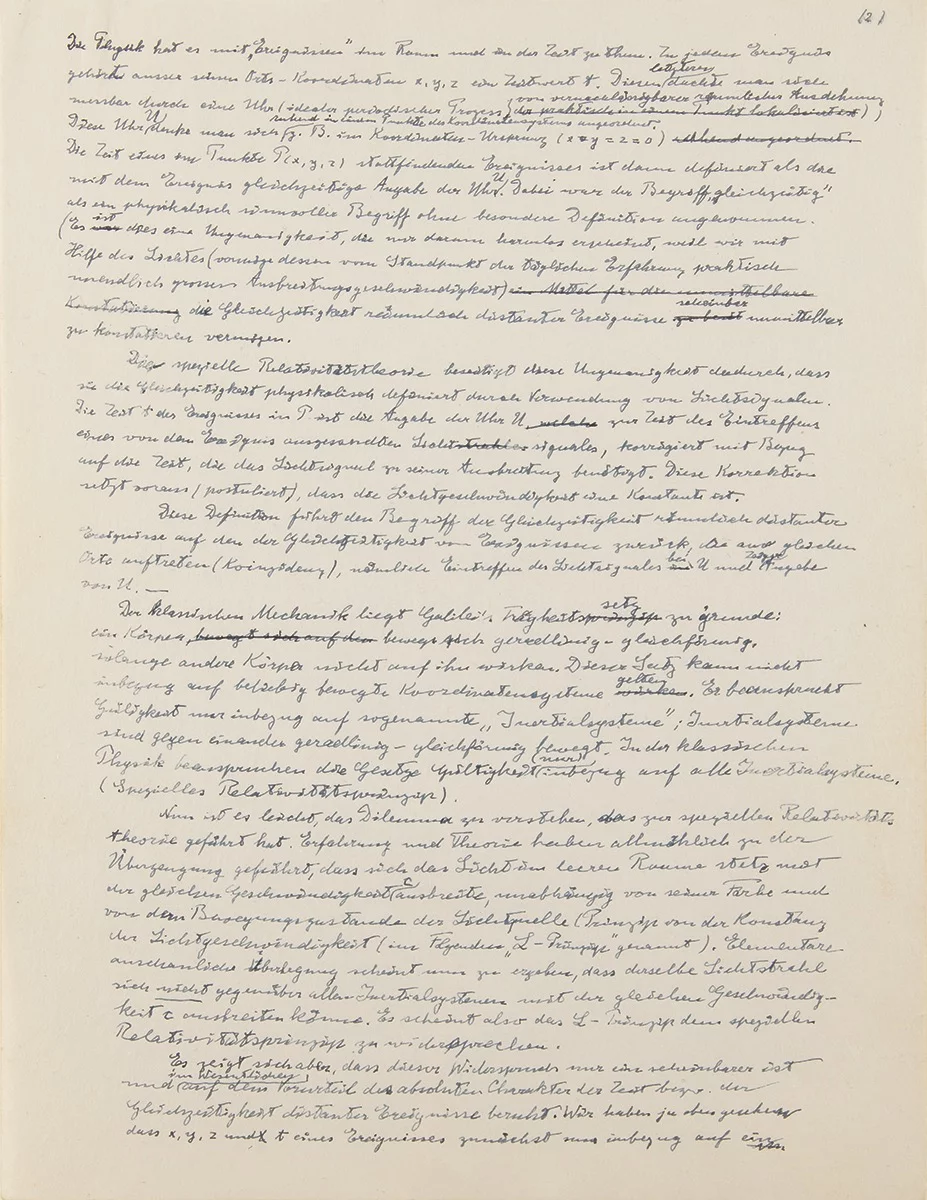 (2)
Die Physik hat es mit „Ereignissen" im Raum und in der Zeit zu thun. Zu jedem Ereignis
gehört ausser seinen Orts-Koordinaten x, y, z ein Zeitwert t. Diesen letzteren dachte man sich
messbar durch eine Uhr (idealer periodischer Prozess von vernachlässigbarer räumlicher Ausdehnung
der praktisch in einem Punkt lokalisiert ist)
ruhend in einem Punkte des Koordinatensystems angeordnet.
Diese Uhr U denke man sich z. B. im Koordinaten-Ursprung (x = y = z = 0) ruhend angeordnet.
Die Zeit eines im Punkte P(x, y, z) stattfindenden Ereignisses ist dann definiert als die
mit dem Ereignis gleichzeitige Angabe der Uhr U. Dabei war der Begriff „gleichzeitig"
als ein physikalisch sinnvoller Begriff ohne besondere Definition angenommen.
(Es war ist dies eine Ungenauigkeit, die nur darum harmlos erscheint, weil wir mit
Hilfe des Lichtes (vermöge dessen vom Standpunkt der täglichen Erfahrung praktisch
unendlich grossen Ausbreitungsgeschwindigkeit) ein Mittel für die unmittelbare
Konstatierung die Gleichzeitigkeit räumlich distanter Ereignisse scheinbar unmittelbar
zu konstatieren vermögen.
Die spezielle Relativitätstheorie beseitigt diese Ungenauigkeit dadurch, dass
sie die Gleichzeitigkeit physikalisch definiert durch Verwendung von Lichtsignalen.
Die Zeit t des Ereignisses in P ist die Angabe der Uhr U, welche zur Zeit des Eintreffens
eines von dem Ereignis ausgesandten Lichtstrahles signales, korrigiert mit Bezug
auf die Zeit, die das Lichtsignal zu seiner Ausbreitung benötigt. Diese Korrektion
setzt voraus (postuliert), dass die Lichtgeschwindigkeit eine Konstante ist.
Diese Definition führt den Begriff der Gleichzeitigkeit räumlich distanter
Ereignisse auf den der Gleichzeitigkeit von Ereignissen zurück, die am gleichen
Orte auftreten (Koinzidenz), nämlich Eintreffen des Lichtsignales bei U und Zeiger Angabe
von U. —
Der klassischen Mechanik liegt Galilei's Trägheitsprinzip satz zu grunde:
ein Körper, bewegt sich auf den bewegt sich geradlinig-gleichförmig,
solange andere Körper nicht auf ihn wirken. Dieser Satz kann nicht
inbezug auf beliebig bewegte Koordinatensysteme wirken gelten. Er beansprucht
Gültigkeit nur inbezug auf sogenannte „Inertialsysteme"; Inertialsysteme
sind gegen einander geradlinig-gleichförmig bewegt. In der klassischen
Physik beanspruchen die Gesetze Gültigkeit (nur) inbezug auf alle Inertialsysteme.
(Spezielles Relativitätsprinzip).
Nun ist es leicht, das Dilemma zu verstehen, das zur speziellen Relativitäts-
theorie geführt hat. Erfahrung und Theorie haben allmählich zu der
Überzeugung geführt, dass sich das Licht im leeren Raume stets mit
der gleichen Geschwindigkeit c ausbreite, unabhängig von seiner Farbe und
von dem Bewegungszustande der Lichtquelle (Prinzip von der Konstanz
der Lichtgeschwindigkeit (im Folgenden „L-Prinzip" genannt). Elementare
anschauliche Überlegung scheint nun zu ergeben, dass derselbe Lichtstrahl
sich nicht gegenüber allen Inertialsystemen mit der gleichen Geschwindig-
keit c ausbreiten könne. Es scheint also das L-Prinzip dem speziellen
Relativitätsprinzip zu widersprechen.
Es zeigt sich aber, dass dieser Widerspruch nur ein scheinbarer ist
und im Wesentlichen auf dem Vorurteil des absoluten Charakter der Zeit bezw. der
Gleichzeitigkeit distanter Ereignisse beruht. Wir haben ja oben gesehen
dass x, y, z und t eines Ereignisses zunächst nur inbezug auf ein